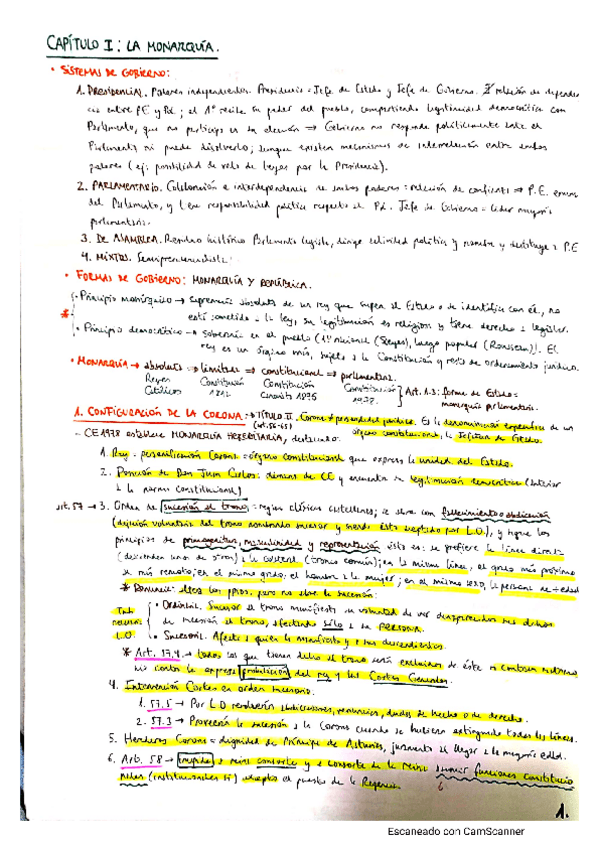 CAPÍTULO I: LA MONARQUÍA.
• SISTEMAS DE GOBIERNO:
1. PRESIDENCIAL. Poderes independientes. Presidente = Jefe de Estado y Jefe de Gobierno. relación de
entre PE y ; el 1º recibe su poder del pueblo, compartiendo legitimidad democrática con
Parlamento, que no participa en su elección ⇒ Gobierno no responde políticamente ante el
Parlamento ni puede disolverlo; aunque existen mecanismos de intermediación entre ambos
poderes (ej: posibilidad de veto de leyes por la Presidencia).
2. PARLAMENTARIO. Colaboración e interdependencia de ambos poderes: relación de confianza ⇒ P.E. emana
del Parlamento, y tiene responsabilidad política respecto al . Jefe de Gobierno = líder mayoría
parlamentaria.
3. DE ASAMBLEA. histórico Parlamento legisla, dirige actividad política y nombra y destituye a P.E
4. MIXTOS. Semipresidencialista.
• FORMAS DE GOBIERNO: MONARQUÍA Y REPÚBLICA.
• Principio monárquico → supremacía absoluta de un rey que supera al Estado o se identifica con él, no
está sometido a la ley, su legitimación es religiosa y tiene derecho a legislar.
• Principio democrático → soberanía en el pueblo (1º nacional (Sieyes), luego popular (Rousseau)). El
rey es un órgano más, sujeto a la Constitución y resto de ordenamiento jurídico.
• MONARQUÍA → absoluta → limitada → constitucional → parlamentaria.
Reyes Constitución Constitución Constitución Art. 1.3: forma de Estado=
Católicos 1812 1876 1978. monarquía parlamentaria.
1. CONFIGURACIÓN DE LA CORONA: → TÍTULO II. Corona ≠ personalidad jurídica. Es la denominación específica de un
(art. 56-65) órgano constitucional, la Jefatura de Estado.
- CE 1978 establece MONARQUÍA HEREDITARIA, destacando:
1. Rey: personificación Corona = órgano constitucional que expresa la unidad del Estado.
2. Posición de Don Juan Carlos: dimana de CE y encuentra su legitimación democrática (anterior
a la norma constitucional)
art. 57 → 3. Orden de sucesión al trono = reglas clásicas castellanas; se abre con fallecimiento o abdicación
(dejación voluntaria del trono nombrando sucesor y siendo ésta aceptada por L.O.), y sigue los
principios de primogenitura, masculinidad y representación esto es: se prefiere la línea directa
(descienden unos de otros) a la colateral (tronco común); en la misma línea, el grado más próximo
al más remoto; en el mismo grado, el hombre a la mujer; en el mismo sexo, la persona de + edad
* Renuncia: , pero no abre la sucesión:
• Ordinaria. Sucesor al trono manifiesta su voluntad de
de sucesión al trono, afectando sólo a su PERSONA.
L.O. • Sucesoria. Afecta a quien la manifiesta y a sus descendientes.
* Art. 57.4 → todos los que tienen dcho al trono serán excluidos de éste si contraen matrimonio
contra la expresa prohibición del rey y las Cortes Generales.
4. Intervención Cortes en orden sucesorio.
1. 57.5 → Por L.O resolverán abdicaciones, renuncias, dudas de hecho o de derecho.
2. 57.3 → Proveerán la sucesión a la Corona cuando se hubieran extinguido todas las líneas.
5. Heredero Corona = dignidad de Príncipe de Asturias, juramento al llegar a la mayoría edad.
6. Art. 58 → impide a reina consorte y a consorte de la Reina asumir funciones constitucio
nales (institucionales sí) excepto el puesto de la Regencia.
1.
Escaneado con CamScanner